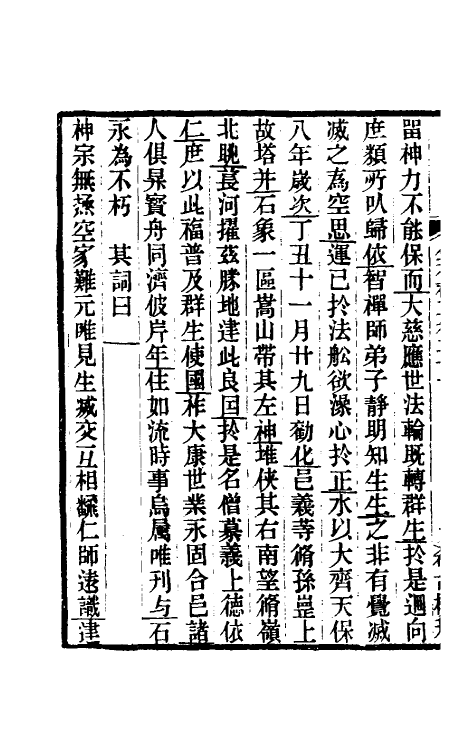 畱神力不能保而大慈應世法輪旣轉群生扵是迴向
庶類所㕥歸依智禪師弟子靜明知生生之非有覺滅
滅之為空思運已扵法舩欲澡心扵正水以大齊天保
八年歲次丁丑十一月廿九日勸化邑義等脩孫豈上
故塔并石象一區嵩山帶其左神堆侠其右南望脩嶺
北眺萇河擢茲勝地建此良因扵是名僧慕義上德依
仁庶以此福普及群生使國祚大康世業永固合邑諸
人俱昇寳舟同濟彼岸年佳如流時事烏属唯刊与石
永為不朽　其詞曰
神宗無𤇆空家難元唯見生滅交互相纏仁師遠識津